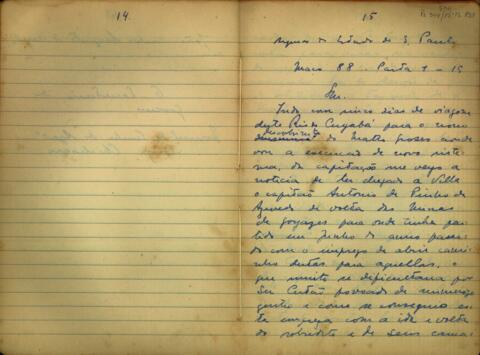 14
15
Arquivo do Estado de S. Paulo
Maço 88 Pasta 1 - 15
Snr.
Indo com cinco dias de viagem
deste Rio do Cuyabá para o novo
descobrimento do Matto Grosso aonde
vou a execução do novo siste
ma da capitação me veyo a
noticia de ter chegado a Villa
o capitão Antonio de Pinho de
Azevedo de volta das Minas
de Goyazes para onde tinha par
tido em Junho do anno passa
do com o emprego de abrir cami
nho destas para aquellas, o
que muito se dificultava por
ser Certão povoado de numeroso
gentio e como se conseguio es
te empreza com a ida e volta
do sobredito e de seus cama